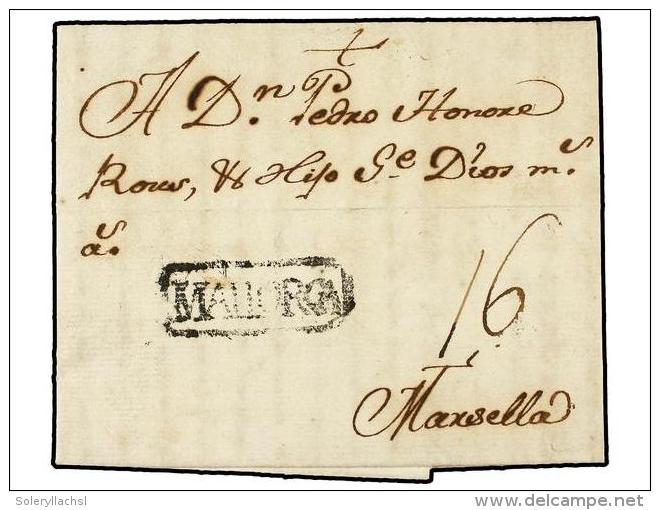 A D.n Pedro Honore
Roux, & Hijo G.e Dios m.s
a.s
MALLORCA
16
Marsella
Soleryllachsl
delcampe.net